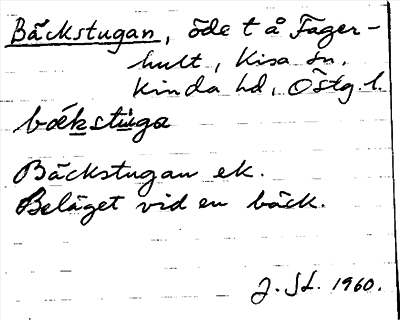 Bäckstugan, öde t å Fager-
hult, Kisa sn.
Kinda hd, Östg. l.
bækstuga
Bäckstugan ek.
Beläget vid en bäck.
J. St. 1960.